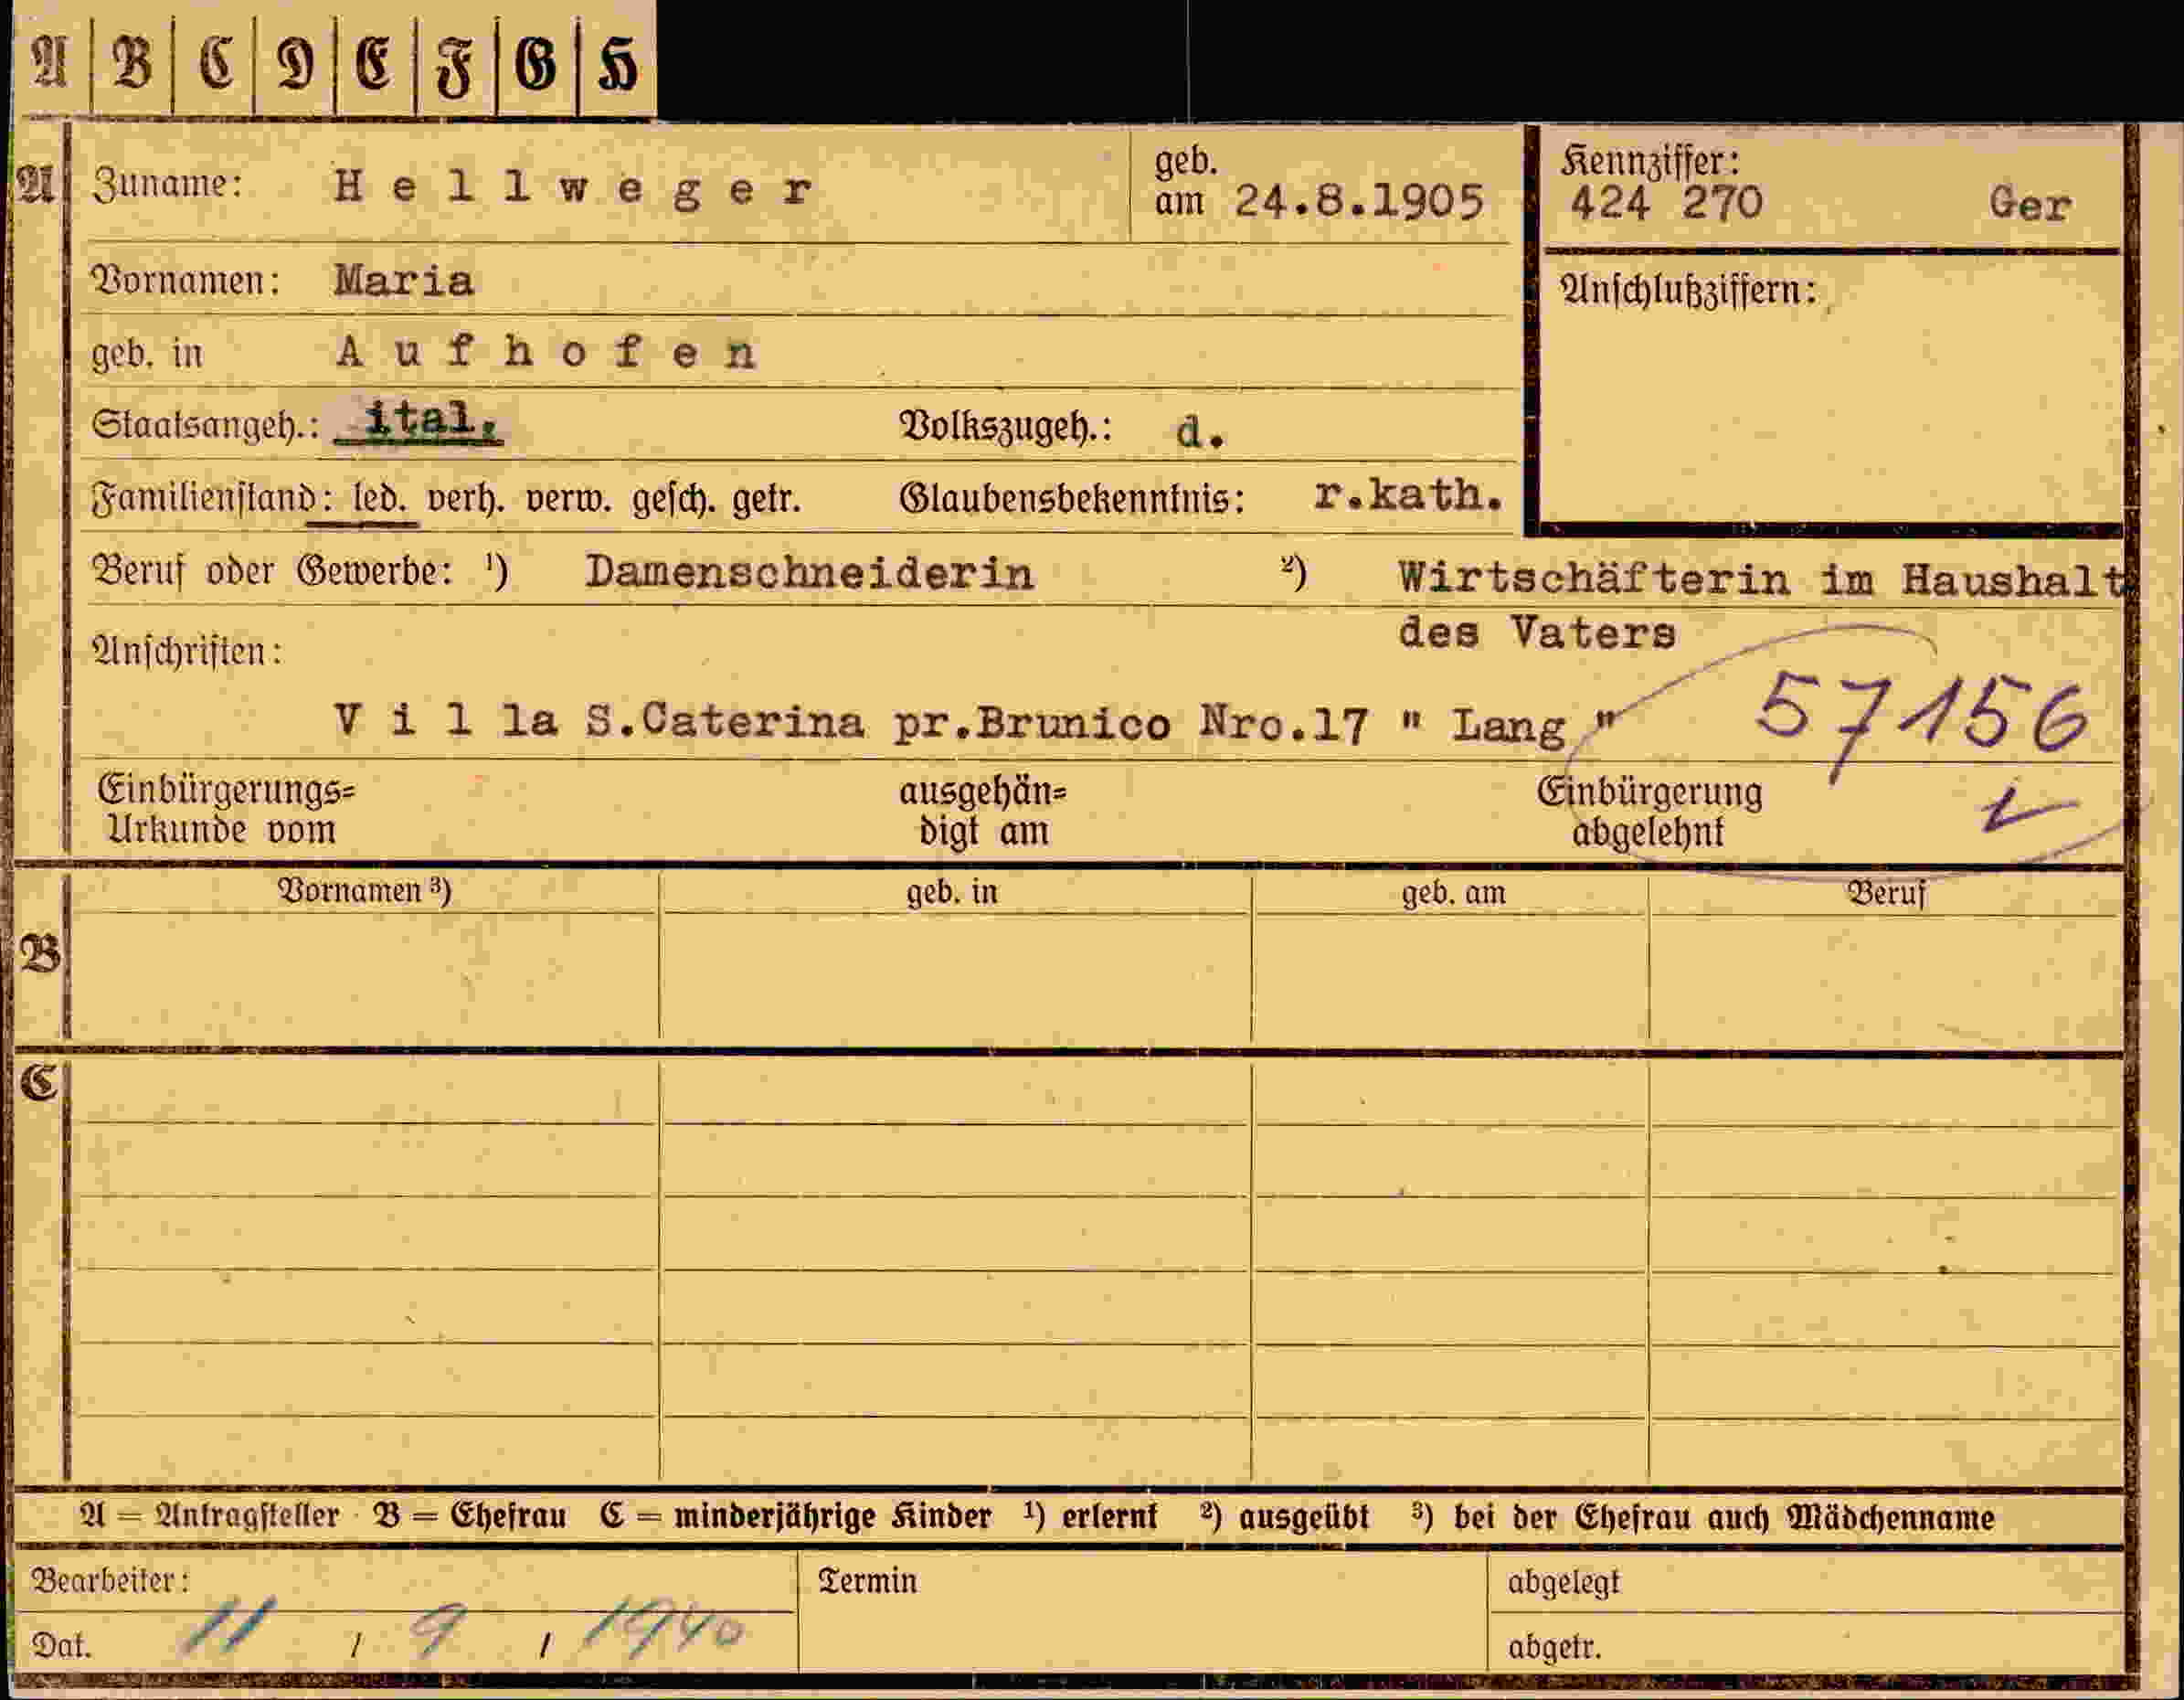 A B C D E F G H
A Zuname: Hellweger geb. am 24.8.1905 Kennziffer: 424 270 Ger
Vornamen: Maria Anschlußziffern:
geb. in Aufhofen
Staatsangeh.: ital. Volkszugeh.: d.
Familienstand: led. verh. verw. gesch. getr. Glaubensbekenntnis: r.kath.
Beruf oder Gewerbe: ¹) Damenschneiderin ²) Wirtschäfterin im Haushalt
des Vaters
Anschriften:
Villa S.Caterina pr.Brunico Nro.17 " Lang " 57156
Einbürgerungs= ausgehän= Einbürgerung
Urkunde vom digt am abgelehnt
Vornamen ³) geb. in geb. am Beruf
B
C
A = Antragsteller B = Ehefrau C = minderjährige Kinder ¹) erlernt ²) ausgeübt ³) bei der Ehefrau auch Mädchenname
Bearbeiter: Termin abgelegt
Dat. 11 / 9 / 1940 abgetr.